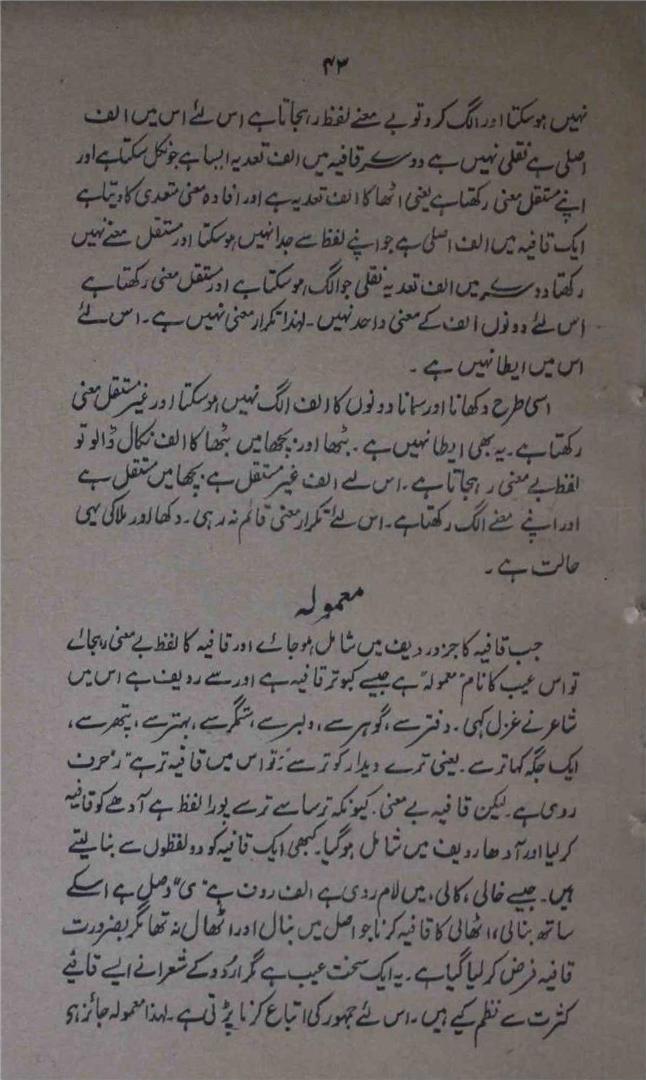 ۴۳
نہیں ہوسکتا اور الگ کرو تو بے معنے لفظ رہجاتا ہے اس لئے اس میں الف
اصلی ہے نقلی نہیں ہے دوسرے قافیہ میں الف تعدیہ ایسا ہے جو نکل سکتا ہے اور
اپنے مستقل معنی رکھتا ہے یعنی اٹھا کا الف تعدیہ ہے اور افادہ معنی متعدی کا دیتا ہے
ایک قافیہ میں الف اصلی ہے جو اپنے لفظ سے جدا نہیں ہوسکتا اور مستقل معنے نہیں
رکھتا دوسرے میں الف تعدیہ نقلی جو الگ ہوسکتا ہے اور مستقل معنی رکھتا ہے
اس لئے دونوں الف کے معنی واحد نہیں۔ لہٰذا تکرار معنی نہیں ہے۔ اس لئے
اس میں ایطا نہیں ہے ۔
اسی طرح دکھانا اور سمانا دونوں کا الف الگ نہیں ہوسکتا اور غیر مستقل معنی
رکھتا ہے۔ یہ بھی ایطا نہیں ہے۔ بٹھا اور بچھا میں بٹھا کا الف نکال ڈالو تو
لفظ بے معنی رہجاتا ہے۔ اس لئے الف غیر مستقل ہے بچھا میں مستقل ہے
اور اپنے معنے الگ رکھتا ہے۔ اس لئے تکرار معنی قائم نہ رہی۔ دکھا اور ملا کی یہی
حالت ہے ۔
معمولہ
جب قافیہ کا جزو ردیف میں شامل ہو جائے اور قافیہ کا لفظ بے معنی رہجائے
تو اس عیب کا نام معمولہ ہے جیسے کبوتر قافیہ ہے اور سے ردیف ہے اس میں
شاعر نے غزل کہی۔ دفتر سے، گوہر سے، دلبر سے، ستمگر سے، بہتر سے، پتھر سے،
ایک جگہ کہا ترسے۔ یعنی ترے دیدار کو ترسے تو اس میں قافیہ تر ہے ’ر‘ حرف
روی ہے۔ لیکن قافیہ بے معنی۔ کیونکہ ترسا سے ترسے پورا لفظ ہے آدھے کو قافیہ
کرلیا اور آدھا ردیف میں شامل ہوگیا۔ کبھی ایک قافیہ کو دو لفظوں سے بنا لیتے
ہیں۔ جیسے خالی، کالی، میں لام روی ہے الف ردف ہے ”ی“ وصل ہے اسکے
ساتھ بنالی، اٹھالی کا قافیہ کرنا جو اصل میں بنال اور اٹھال نہ تھا مگر بضرورت
قافیہ فرض کرلیا گیا ہے۔ یہ ایک سخت عیب ہے مگر اردو کے شعرا نے ایسے قافیے
کثرت سے نظم کیے ہیں۔ اس لئے جمہور کی اتباع کرنا پڑتی ہے۔ لہذا معمولہ جائز ہے